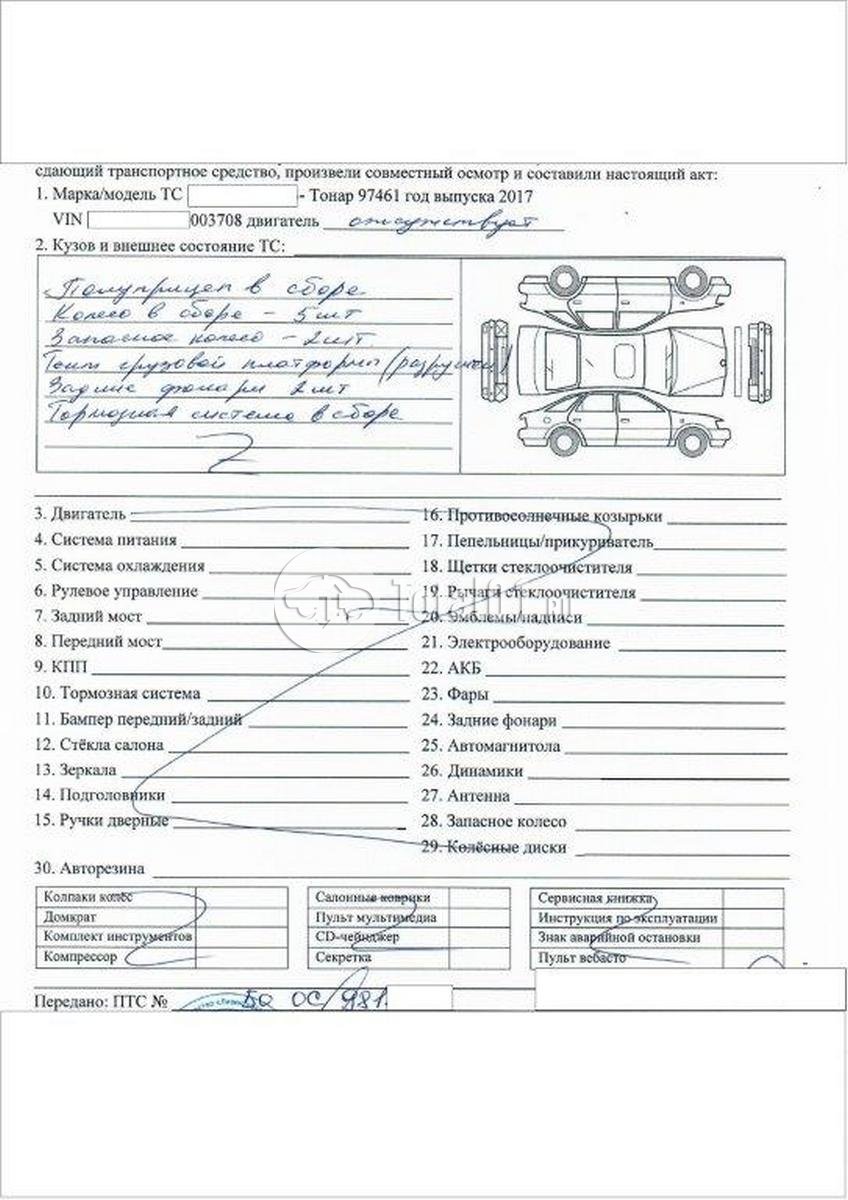 сдающий транспортное средство, произвели совместный осмотр и составили настоящий акт:
1. Марка/модель ТС - Тонар 97461 год выпуска 2017
VIN 003708 двигатель отсутствует
2. Кузов и внешнее состояние ТС:
Полуприцеп в сборе
Колесо в сборе - 5 шт
Запасное колесо - 2 шт.
Тент грузовой платформы (разрушен)
Задние фонари 2 шт
Тормозная система в сборе
3. Двигатель
4. Система питания
5. Система охлаждения
6. Рулевое управление
7. Задний мост
8. Передний мост
9. КПП
10. Тормозная система
11. Бампер передний/задний
12. Стёкла салона
13. Зеркала
14. Подголовники
15. Ручки дверные
16. Противосолнечные козырьки
17. Пепельницы/прикуриватель
18. Щетки стеклоочистителя
19. Рычаги стеклоочистителя
20. Эмблемы/надписи
21. Электрооборудование
22. АКБ
23. Фары
24. Задние фонари
25. Автомагнитола
26. Динамики
27. Антенна
28. Запасное колесо
29. Колёсные диски
30. Авторезина
Колпаки колёс
Домкрат
Комплект инструментов
Компрессор
Салонные коврики
Пульт мультимедиа
CD-чейнджер
Секретка
Сервисная книжка
Инструкция по эксплуатации
Знак аварийной остановки
Пульт вебасто
Передано: ПТС № 50 ОС/981
Total01.ru